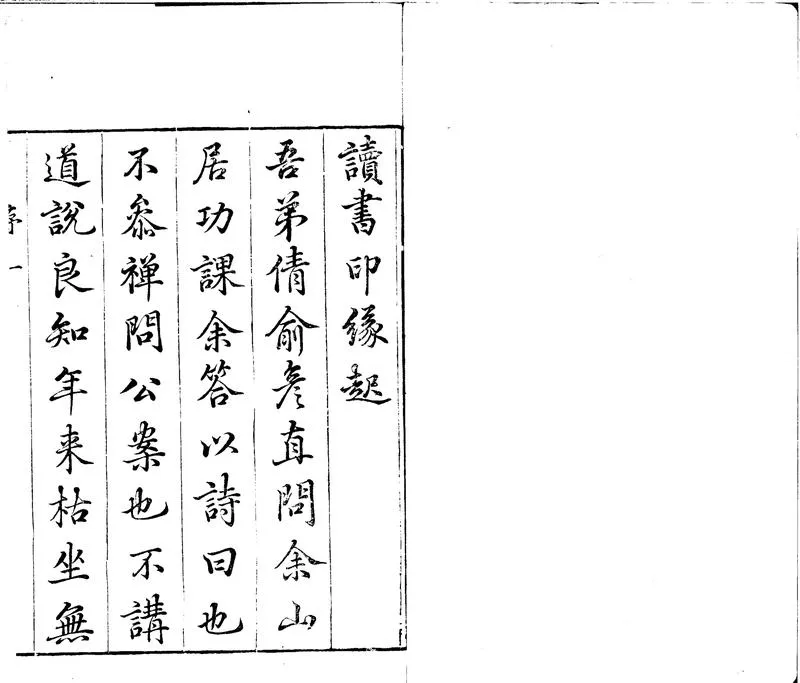 讀書印緣起
吾弟倩俞彥直問余山
居功課余答以詩曰也
不叅禪問公案也不講
道說良知年来枯坐無
序 一